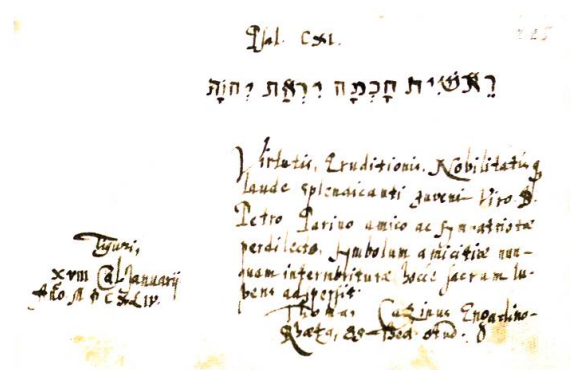 Psal. CXI.
רֵאשִׁית חָכְמָה יִרְאַת יְהוָה
Virtutis, Eruditionis, Nobilitatisq
laude splendicanti Juveni Viro D.
Petro Parino amico ac symπatriotæ
perdilecto, symbolum amicitiæ nun-
quam intermorituræ hocce sacrum lu-
bens adspersit
Thomas Engadino-
Rhæta, SS Theol. stud.
Tiguri,
XVIII Cal Januarij
Año